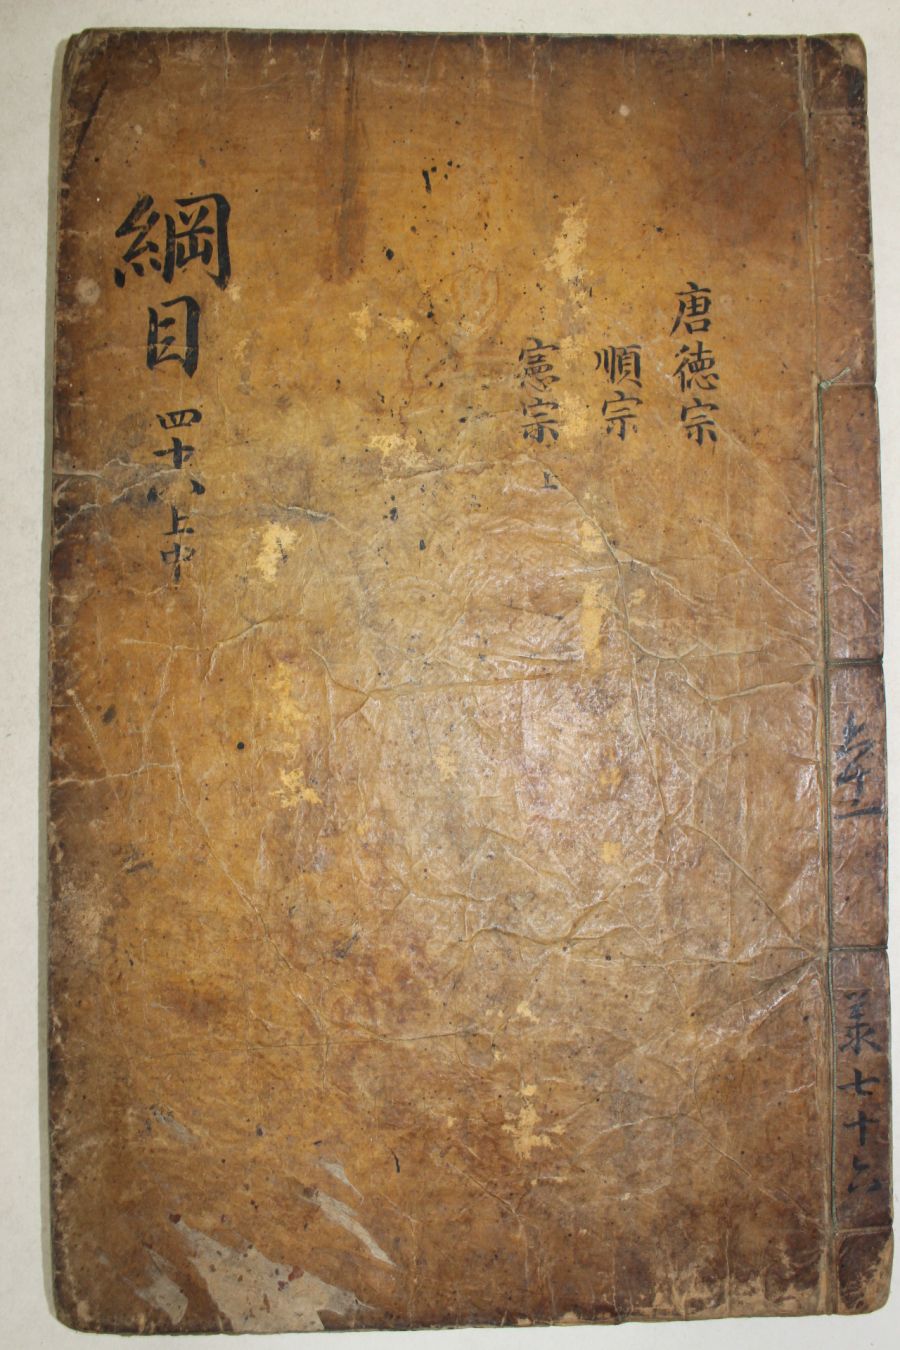 唐德宗
順宗
憲宗 上
綱目 四十八 上中
共七十六